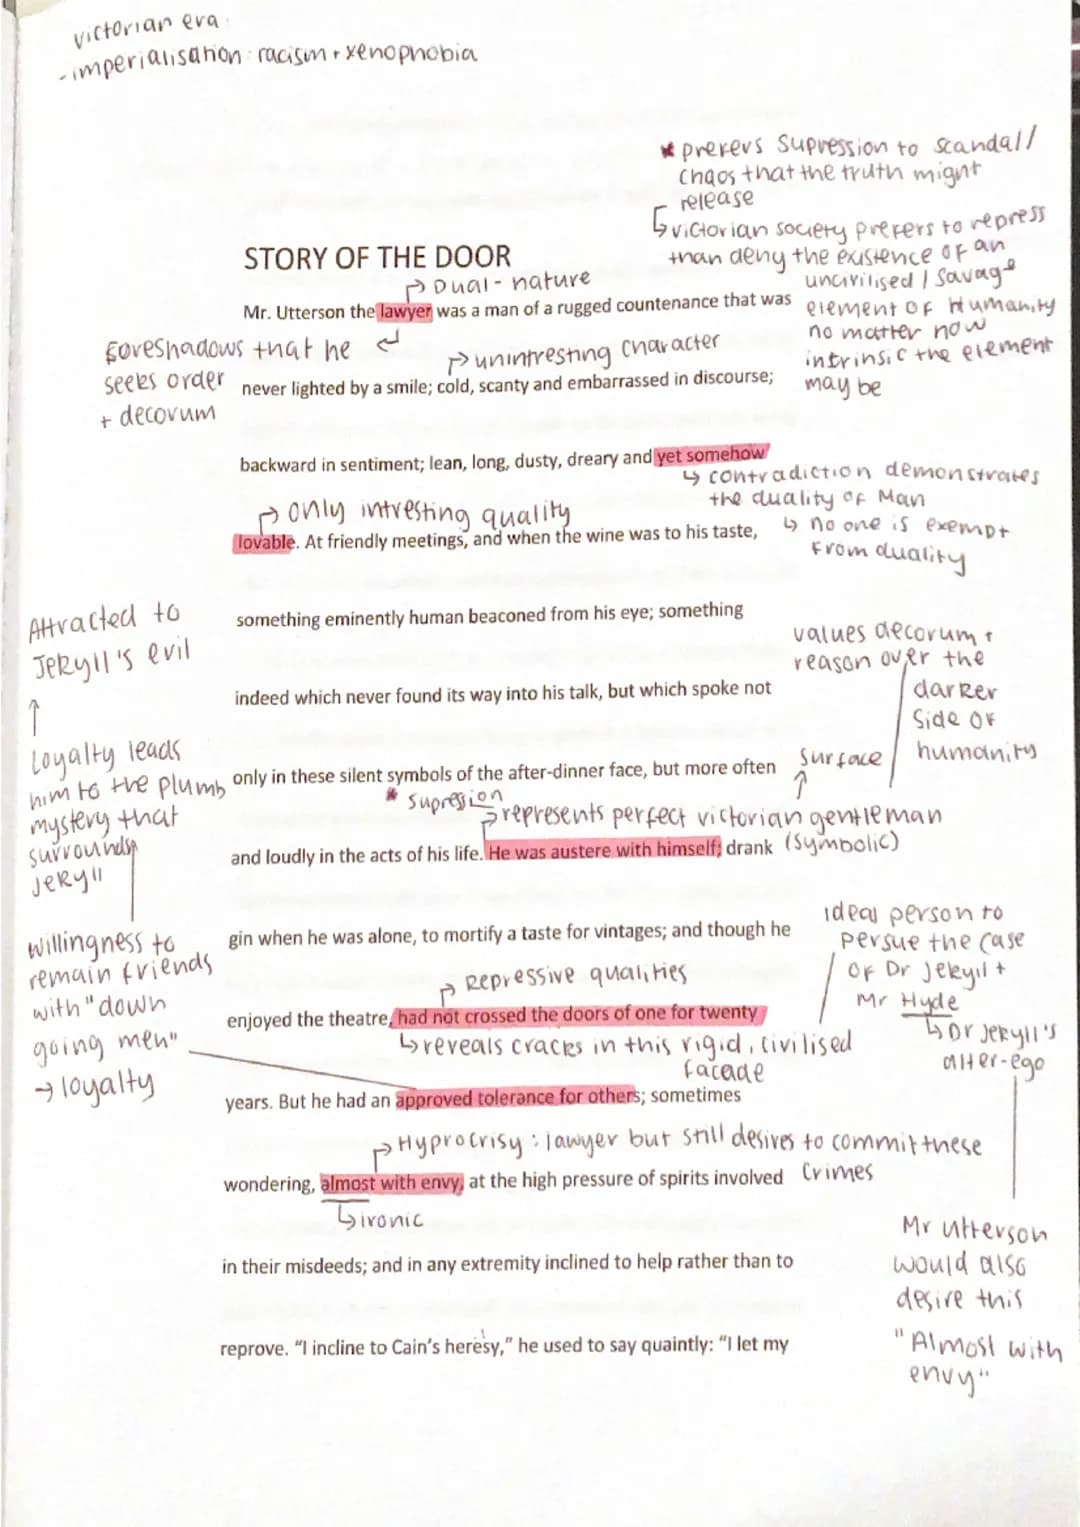 victorian era.
- imperialisation: racism + xenophobia
* prefers supression to scandal/
chaos that the truth might
release
↳ victorian society prefers to repress
than deny the existence of an
uncivilised / savage
element of Humanity
no matter how
intrinsic the element
may be
STORY OF THE DOOR
↱ Dual-nature
Mr. Utterson the lawyer was a man of a rugged countenance that was
foreshadows that he
seeks order
+ decorum
↱ unintresting character
never lighted by a smile; cold, scanty and embarrassed in discourse;
backward in sentiment; lean, long, dusty, dreary and yet somehow
↳ contradiction demonstrates
the duality of Man
↳ no one is exempt
from duality
↱ only intresting quality
lovable. At friendly meetings, and when the wine was to his taste,
something eminently human beaconed from his eye; something
Attracted to
Jekyll's evil
↑
Loyalty leads
him to the plumb
mystery that
surrounds
Jekyll
values decorum +
reason over the
darker
side of
humanity
indeed which never found its way into his talk, but which spoke not
only in these silent symbols of the after-dinner face, but more often
surface
* supression
↱ represents perfect victorian gentleman
(symbolic)
and loudly in the acts of his life. He was austere with himself; drank
willingness to
remain friends
with "down
going men"
→ loyalty
ideal person to
persue the case
of Dr Jekyll +
Mr Hyde
↳ Dr Jekyll's
alter-ego
gin when he was alone, to mortify a taste for vintages; and though he
↱ Repressive qualities
enjoyed the theatre, had not crossed the doors of one for twenty
↳ reveals cracks in this rigid, civilised
facade
years. But he had an approved tolerance for others; sometimes
↱ Hyprocrisy: lawyer but still desires to commit these
crimes
wondering, almost with envy, at the high pressure of spirits involved
↳ ironic
Mr Utterson
would also
desire this
"Almost with
envy"
in their misdeeds; and in any extremity inclined to help rather than to
reprove. "I incline to Cain's heresy," he used to say quaintly: "I let my